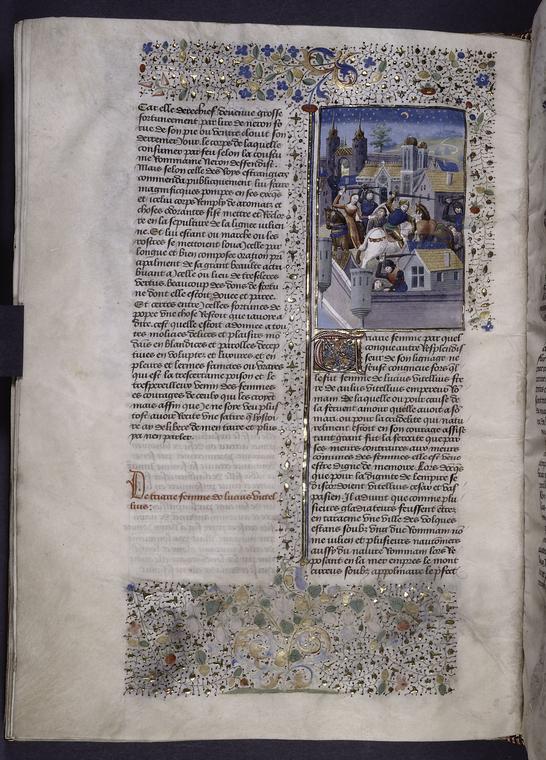 Car elle derechief devenue grosse
fortuneement par lire de neron fe
rue de son pie ou ventre clouit son
derrenier jour. le corps de laquelle
consumer par feu selon la coustu
me Rommaine Neron deffendist.
Mais selon celle des Roys estrangiers
commenda publiquement lui faire
magnifiques pompes en ses exeqs
et icelui corps remply de aromatz et
choses odorantes fist mettre et
re en la sepulture de la ligne iulien
ne. Et lui estant ou marche ou les
se mettoient loua icelle par
longue et bien composee oration pn
cipalment de sa grant beaulte actri
buant a icelle ou lieu de trescleres
vertus. beaucoup des dons de fortu
ne dont elle estoit doucee et paree.
Et certes entre icelles fortunes de
popee une chose restoit que iavoie a
dire. cest quelle estoit adonnee a tou
tes molices delices et plaisirs mo
en blandices et parolles decep
tives en voluptez et luxures et en
pleurs et lermes faintes ou vraies
qui est la trescertaine poison et le
trespereilleux venin des femmes
es courages de ceulx qui les croyet
mais affin que ie ne soye veu plus
tost avoir escrite une satire que hystoi
re ay delibere de men taire et plus
ne parler.
De triaire femme de lucius vitel
lius:
Triaire femme par quel
conque autre resplendis
seur de son lignage ne
feust congneue fors ql
le fut femme de lucius vitellius fre
re de aulus vitellius empereur Ro
main de laquelle ou pour cause de
la fervent amour quelle avoit a so
mari ou pour la crudelite qui natu
relment estoit en son courage assise
tant grant fut la ferocite que par
ses meurs contraires aux meurs
communes des femmes elle est veue
estre digne de memoire. Lors donqs
que pour la dignite de lempire se
discordoient vitellius cesar et vas
pasien. Il advint que comme plu
sieurs gladiateurs feussent entrez
en taracine une ville des volques
estans soubz ung duc Rommain no
me iulien et plusieurs nautoniers
aussy du navire Rommain lors re
posant en la mer empres le mont
soubz appolinaire le pfect